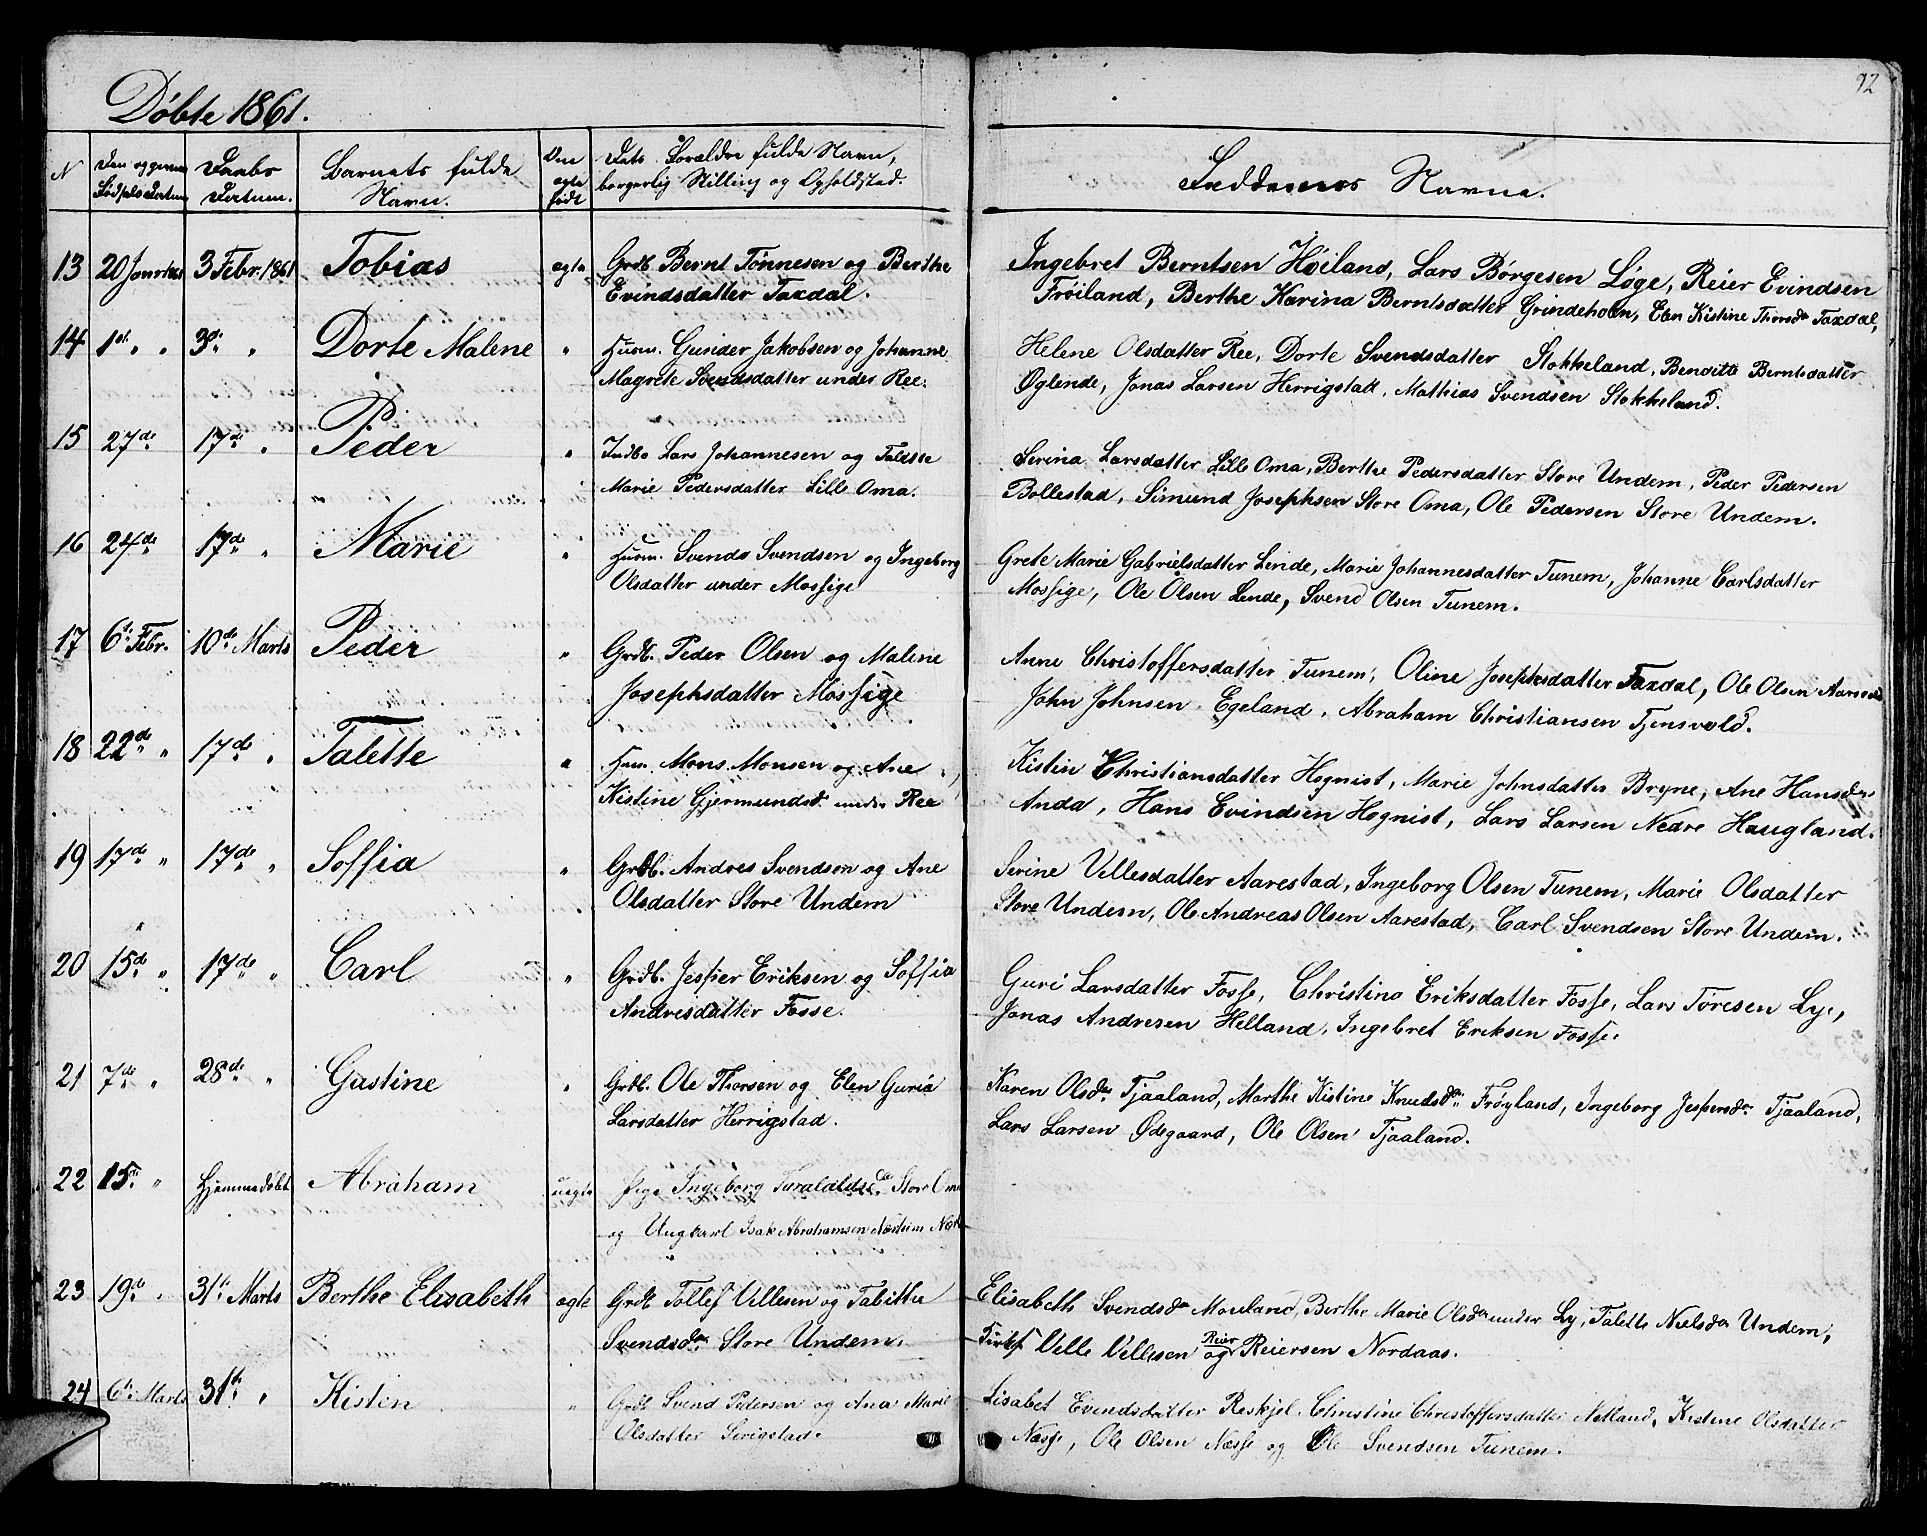 92
Döbte 1861.
N
Den og germ Födsels Datum
Daabs Datum.
Barnets fulde Navn.
Om ægte født
Dets Forældre fulde Navn, borgerlig Stilling og Opholdsted.
Faddernes Navne.
13 20 Januar 3 Febr. 1861 Tobias ægte Grdb. Bernt Tönnesen og Berthe
Evindsdatter Taxdal.
Ingebret Berntsen Höiland, Lars Börgesen Löge, Reier Evindsen
Fröiland, Berthe Karina Berntsdatter Grindeholen, Elen Kistine Thorsdr Taxdal,
14 1st " " 3di " Dorte Malene " Husm. Gunder Jakobsen og Johanne
Magrete Svendsdatter under Ree.
Helene Olsdatter Ree, Dorte Svendsdatter Stokkeland, Bendite Berntsdatter
Øglende, Jonas Larsen Herrigstad, Mathias Svendsen Stokkeland.
15 27de 17de " Peder " Indbo Lars Johannesen og Talette
Marie Pedersdatter Lille Oma.
Serina Larsdatter Lille Oma, Berthe Pedersdatter Store Undem, Peder Pedersen
Bollestad, Simund Josephsen Store Oma, Ole Pedersen Store Undem.
16 24de 17de " Marie " Husm. Svend Svendsen og Ingeborg
Olsdatter under Mossige
Grete Marie Gabrielsdatter Lende, Marie Johannesdatter Tunem, Johanne Carlsdatter
Mossige, Ole Olsen Lende, Svend Olsen Tunem.
17 6te Febr. 10de Marts Peder " Grdb. Peder Olsen og Malene
Josephsdatter Mossige
Anne Christoffersdatter Tunem, Oline Josephsdatter Taxdal, Ole Olsen
John Johnsen Egeland, Abraham Christiansen Tjensvold.
18 22de " 17de " Talette " Husm. Mons Monsen og Ane
Kistine Gjermundsd. under Ree
Kistin Christiansdatter Hognist, Marie Johnsdatter Bryne, Ane Hansdr
Anda, Hans Evindsen Hognist, Lars Larsen Nedre Haugland.
19 17de " 17de " Soffia " Grdb. Andres Svendsen og Ane
Olsdatter Store Undem
Serine Villesdatter Aarestad, Ingeborg Olsen Tunem, Marie Olsdatter
Store Undem, Ole Andreas Olsen Aarestad, Carl Svendsen Store Undem.
20 15de " 17de " Carl " Grdb. Jesper Eriksen og Soffia
Andresdatter Fosse.
Guri Larsdatter Fosse, Christina Eriksdatter Fosse, Lars Töresen Ly,
Jonas Andresen Helland, Ingebret Eriksen Fosse.
21 7de " 28de " Gustine " Grdb. Ole Thorsen og Elen Guria
Larsdatter Herrigstad.
Karen Olsdr Tjaaland, Marthe Kistine Knudsdr Fröyland, Ingeborg Jespersdr Tjaaland,
Lars Larsen Ødegaard, Ole Olsen Tjaaland.
22 15de " Hjemmedöbt Abraham uægte Pige Ingeborg Store Oma
og Ungkarl Isak Abrahamsen
23 19de " 31te Marts Berthe Elisabeth ægte Grdb Tollef Villesen og Tabitha
Svendsdr Store Undem.
Elisabeth Svendsdr Mouland, Berthe Marie Olsdr under Ly, Talette Nielsdr Undem,
Ville Villesen og Reier Reiersen Nordaas.
24 6te Marts 31te " Kisten " Grdb Svend Pedersen og Ana Marie
Olsdatter Serigstad.
Lisabet Evendsdatter Reskjel, Christine Christoffersdatter Netland, Kistene Olsdatter
Næsse, Ole Olsen Næsse og Ole Svendsen Tunem.